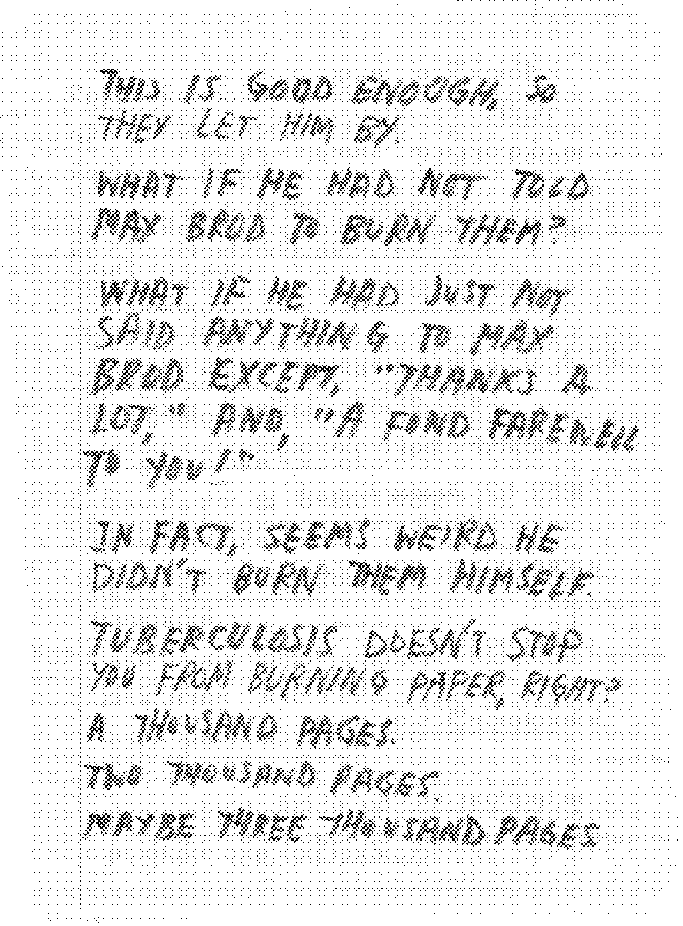 THIS IS GOOD ENOUGH, SO
THEY LET HIM BY.
WHAT IF HE HAD NOT TOLD
MAX BROD TO BURN THEM?
WHAT IF HE HAD JUST NOT
SAID ANYTHING TO MAX
BROD EXCEPT, "THANKS A
LOT," AND, "A FOND FAREWELL
TO YOU!"
IN FACT, SEEMS WEIRD HE
DIDN'T BURN THEM HIMSELF.
TUBERCULOSIS DOESN'T STOP
YOU FROM BURNING PAPER, RIGHT?
A THOUSAND PAGES.
TWO THOUSAND PAGES.
MAYBE THREE THOUSAND PAGES